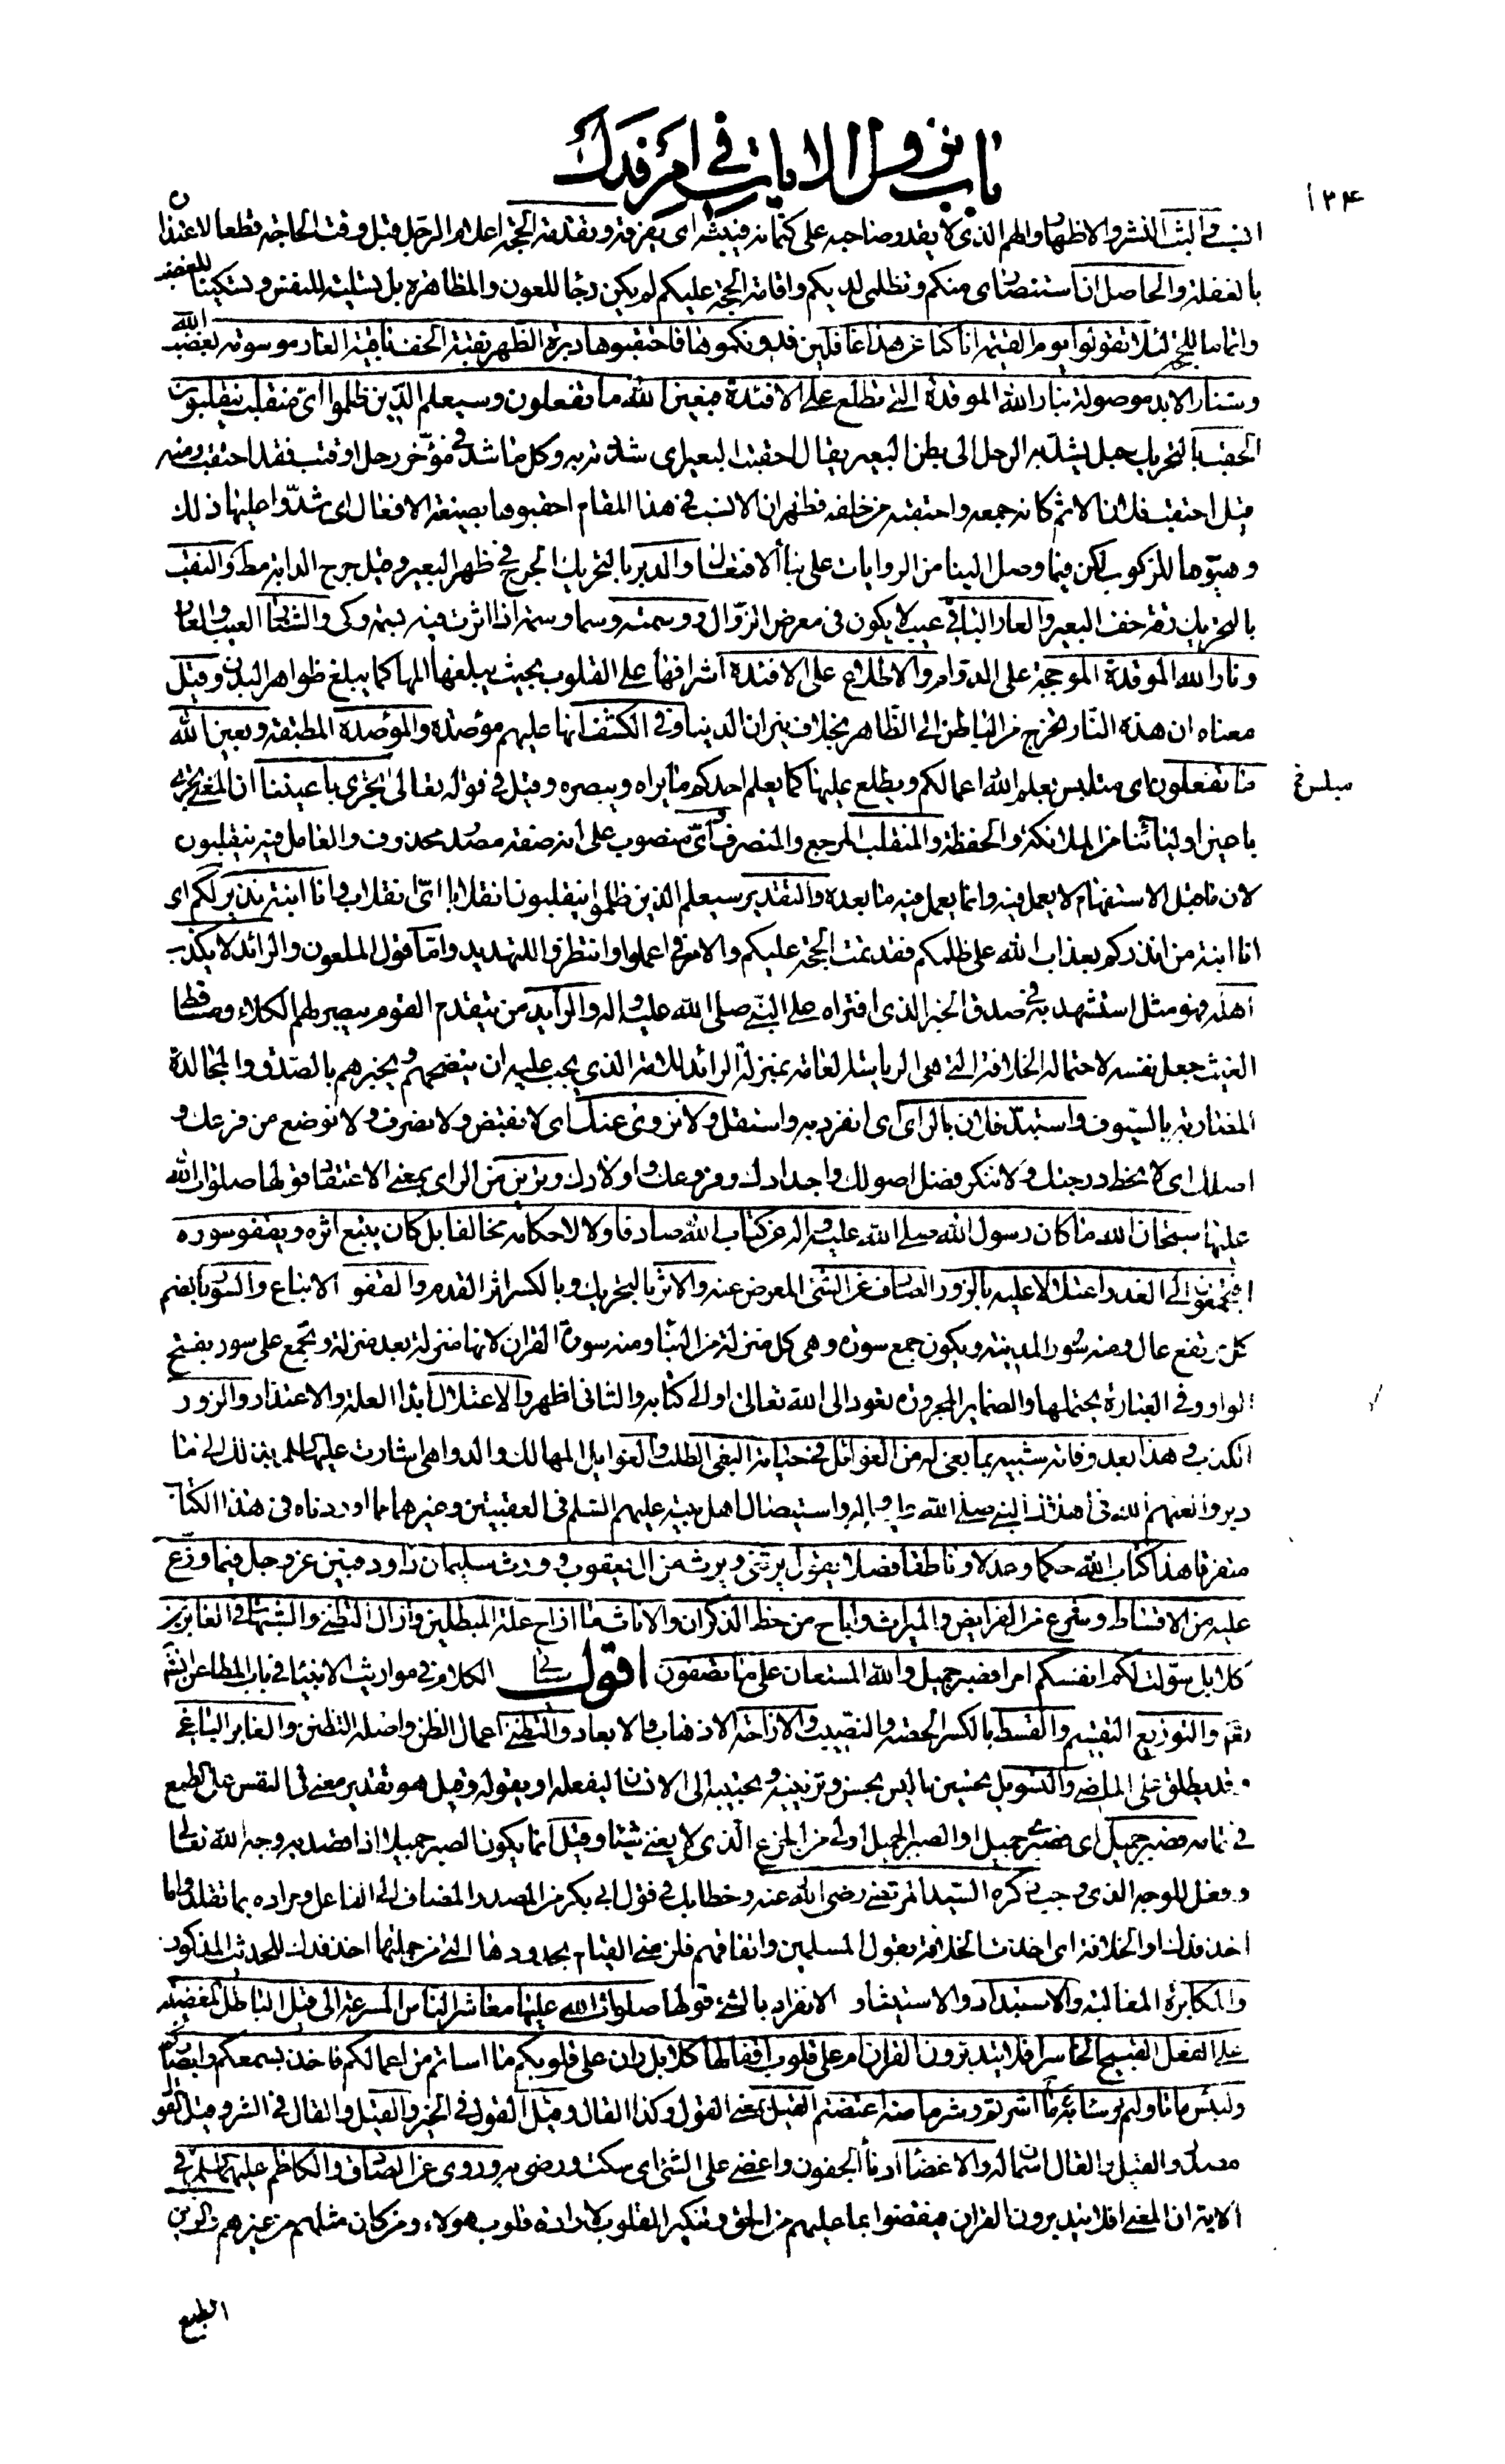 باب نزول الايات في امر فدك
١٣۴
انسب و البث النشر و الاظهار و الهم الذى لا يقدر صاحبه على كتمانه فيبثه اى يفرقه و تقدمة الحجة اعلام الرجل قبل وقت الحاجة قطعا لاعتذاره
بالغفلة و الحاصل ان استنصارى منكم و تظلمى لديكم و اقامة الحجة عليكم لم يكن رجاء للعون و المظاهرة بل تسلية للنفس و تسكينا للغضب
و اتماما للحجة لئلا تقولوا يوم القيمة انا كنا عن هذا غافلين فدونكموها فاحتقبوها دبرة الظهر نقبة الخف باقية العار موسومة بغضب الله
و شنار الابد موصولة بنار الله الموقدة التى تطلع على الافئدة فبعين الله ما تفعلون و سيعلم الذين ظلموا اى منقلب ينقلبون
الحقب بالتحريك حبل يشد به الرحل الى بطن البعير يقال احقبت البعير اى شددته به و كل ما شد فى مؤخر رحل او قتب فقد احتقب و منه
قيل احتقب فلان الاثم كانه جمعه و احتقبه من خلفه فظهر ان الانسب فى هذا المقام احقبوها بصيغة الافعال اى شدوا عليها ذلك
و هيئوها للركوب لكن فيما وصل الينا من الروايات على بناء الافتعال و الدبر بالتحريك الجرح فى ظهر البعير و قيل جرح الدابة مطلقا و النقب
بالتحريك رقة خف البعير و العار الباقى عيب لا يكون فى معرض الزوال و وسمته وسما و سمة اذا اثرت فيه بسمة و كى و الشنار العيب و العار
و نار الله الموقدة الموججة على الدوام و الاطلاع على الافئدة اشرافها على القلوب بحيث يبلغها المها كما يبلغ ظواهر البدن و قيل
معناه ان هذه النار تخرج من الباطن الى الظاهر بخلاف نيران الدنيا و فى الكشف انها عليهم موصدة و الموصدة المطبقة و بعين الله
ما تفعلون اى متلبس بعلم الله اعمالكم و يطلع عليها كما يعلم احدكم ما يراه و يبصره و قيل فى قوله تعالى تجرى باعيننا ان المعنى تجرى
باعين اوليائنا من الملائكة و الحفظة و المنقلب المرجع و المنصرف و اى منصوب على انه صفة مصدر محذوف و العامل فيه ينقلبون
لان ما قبل الاستفهام لا يعمل فيه و انما يعمل فيه ما بعده و التقدير سيعلم الذين ظلموا ينقلبون انقلابا اى انقلاب و انا ابنة نذير لكم اى
انا ابنة من انذركم بعذاب الله على ظلمكم فقد تمت الحجة عليكم و الامر فى اعملوا و انتظروا للتهديد و اما قول الملعون و الرائد لا يكذب
اهله فهو مثل استشهد به فى صدق الخبر الذى افتراه على النبى صلى الله عليه و اله و الرايد من يتقدم القوم يبصر لهم الكلاء و مساقط
الغيث جعل نفسه لاحتماله الخلافة التى هى الرياسة العامة بمنزلة الرائد للامة الذى يجب عليه ان ينصحهم و يخبرهم بالصدق و المجالدة
المضاربة بالسيوف و استبد فلان بالراى اى انفرد به و استقل و لا نزوى عنك اى لا نقبض و لا نصرف و لا نوضع من فرعك و
اصلك اى لا نحط درجتك و لا ننكر فضل اصولك و اجدادك و فروعك و اولادك و ترين من الراى بمعنى الاعتقاد قولها صلوات الله
عليها سبحان الله ما كان رسول الله صلى الله عليه و اله عن كتاب الله صادفا و لا لاحكامه مخالفا بل كان يتبع اثره و يقفو سوره
افتجمعون الى الغدر اعتلالا عليه بالزور الصادف عن الشئ المعرض عنه و الاثر بالتحريك و بالكسر اثر القدم و القفو الاتباع و السور بالضم
كل مرتفع عال و منه سور المدينة و يكون جمع سورة و هى كل منزلة من البناء و منه سورة القران لانها منزلة بعد منزلة و تجمع على سور بفتح
الواو و فى العبارة يحتملها و الضماير المجرورة تعود الى الله تعالى او الى كتابه و الثانى اظهر و الاعتلال ابداء العلة و الاعتذار و الزور
الكذب و هذا بعد وفاته شبيه بما بغى له من الغوائل فى حياته البغى الطلب و الغوايل المهالك و الدواهى اشارت عليها السلم بذلك الى ما
دبروا لعنهم الله فى اهلاك النبى صلى الله عليه و اله و استيصال اهل بيته عليهم السلم فى العقبتين و غيرهما مما اوردناه فى هذا الكتاب
متفرقا هذا كتاب الله حكما عدلا و ناطقا فصلا يقول يرثنى و يرث من ال يعقوب و ورث سليمان داود فبين عز و جل فيما وزع
عليه من الاقساط و شرع من الفرايض و الميراث و اباح من حظ الذكران و الاناث ما ازاح علة المبطلين و ازال التظنى و الشبهات فى الغابرين
كلا بل سولت لكم انفسكم امرا فصبر جميل و الله المستعان على ما تصفون اقول سياتى الكلام فى مواريث الانبياء فى باب المطاعن انشاء الله
تعالى و التوزيع التقسيم و القسط بالكسر الحصة و النصيب و الازاحة الاذهاب و الابعاد و التظنى اعمال الظن و اصله التظنن و الغابر الباقى
و قد يطلق على الماضى و التسويل تحسين ما ليس بحسن و تزيينه و تحبيبه الى الانسان ليفعله او يقوله و قيل هو تقدير معنى فى النفس على الطمع
فى تمامه فصبر جميل اى فصبرى جميل او الصبر الجميل اولى من الجزع الذى لا يغنى شيئا و قيل انما يكون الصبر جميلا اذا قصد به وجه الله تعالى
و فعل للوجه الذى وجب ذكره السيد المرتضى رضى الله عنه و خطابك فى قول ابى بكر من المصدر المضاف الى الفاعل و مراده بما تقلدوا ما
اخذ فدك او الخلافة اى اخذت الخلافة بقول المسلمين و اتفاقهم فلزمنى القيام بحدودها التى من جملتها اخذ فدك للحديث المذكور
و المكابرة المغالبة و الاستبداد و الاستيثار الانفراد بالشئ قولها صلوات الله عليها معاشر الناس المسرعة الى قيل الباطل المغضية
على الفعل القبيح الخاسر افلا يتدبرون القران ام على قلوب اقفالها كلا بل ران على قلوبكم ما اساتم من اعمالكم فاخذ بسمعكم و ابصاركم
و لبئس ما تاولتم و ساء ما اشرتم و شر ما منه اعتضتم القيل بمعنى القول و كذا القال و قيل القول فى الخير و القيل و القال فى الشر و قيل القول
مصدر و القيل و القال اسمان له و الاغضاء ادناء الجفون و اغضى على الشئ اى سكت و رضى به و روى عن الصادق و الكاظم عليهما السلم فى
الاية ان المعنى افلا يتدبرون القران فيقضوا بما عليهم من الحق و تنكير القلوب لارادة قلوب هولاء و من كان مثلهم من غيرهم و الرين
الطبع